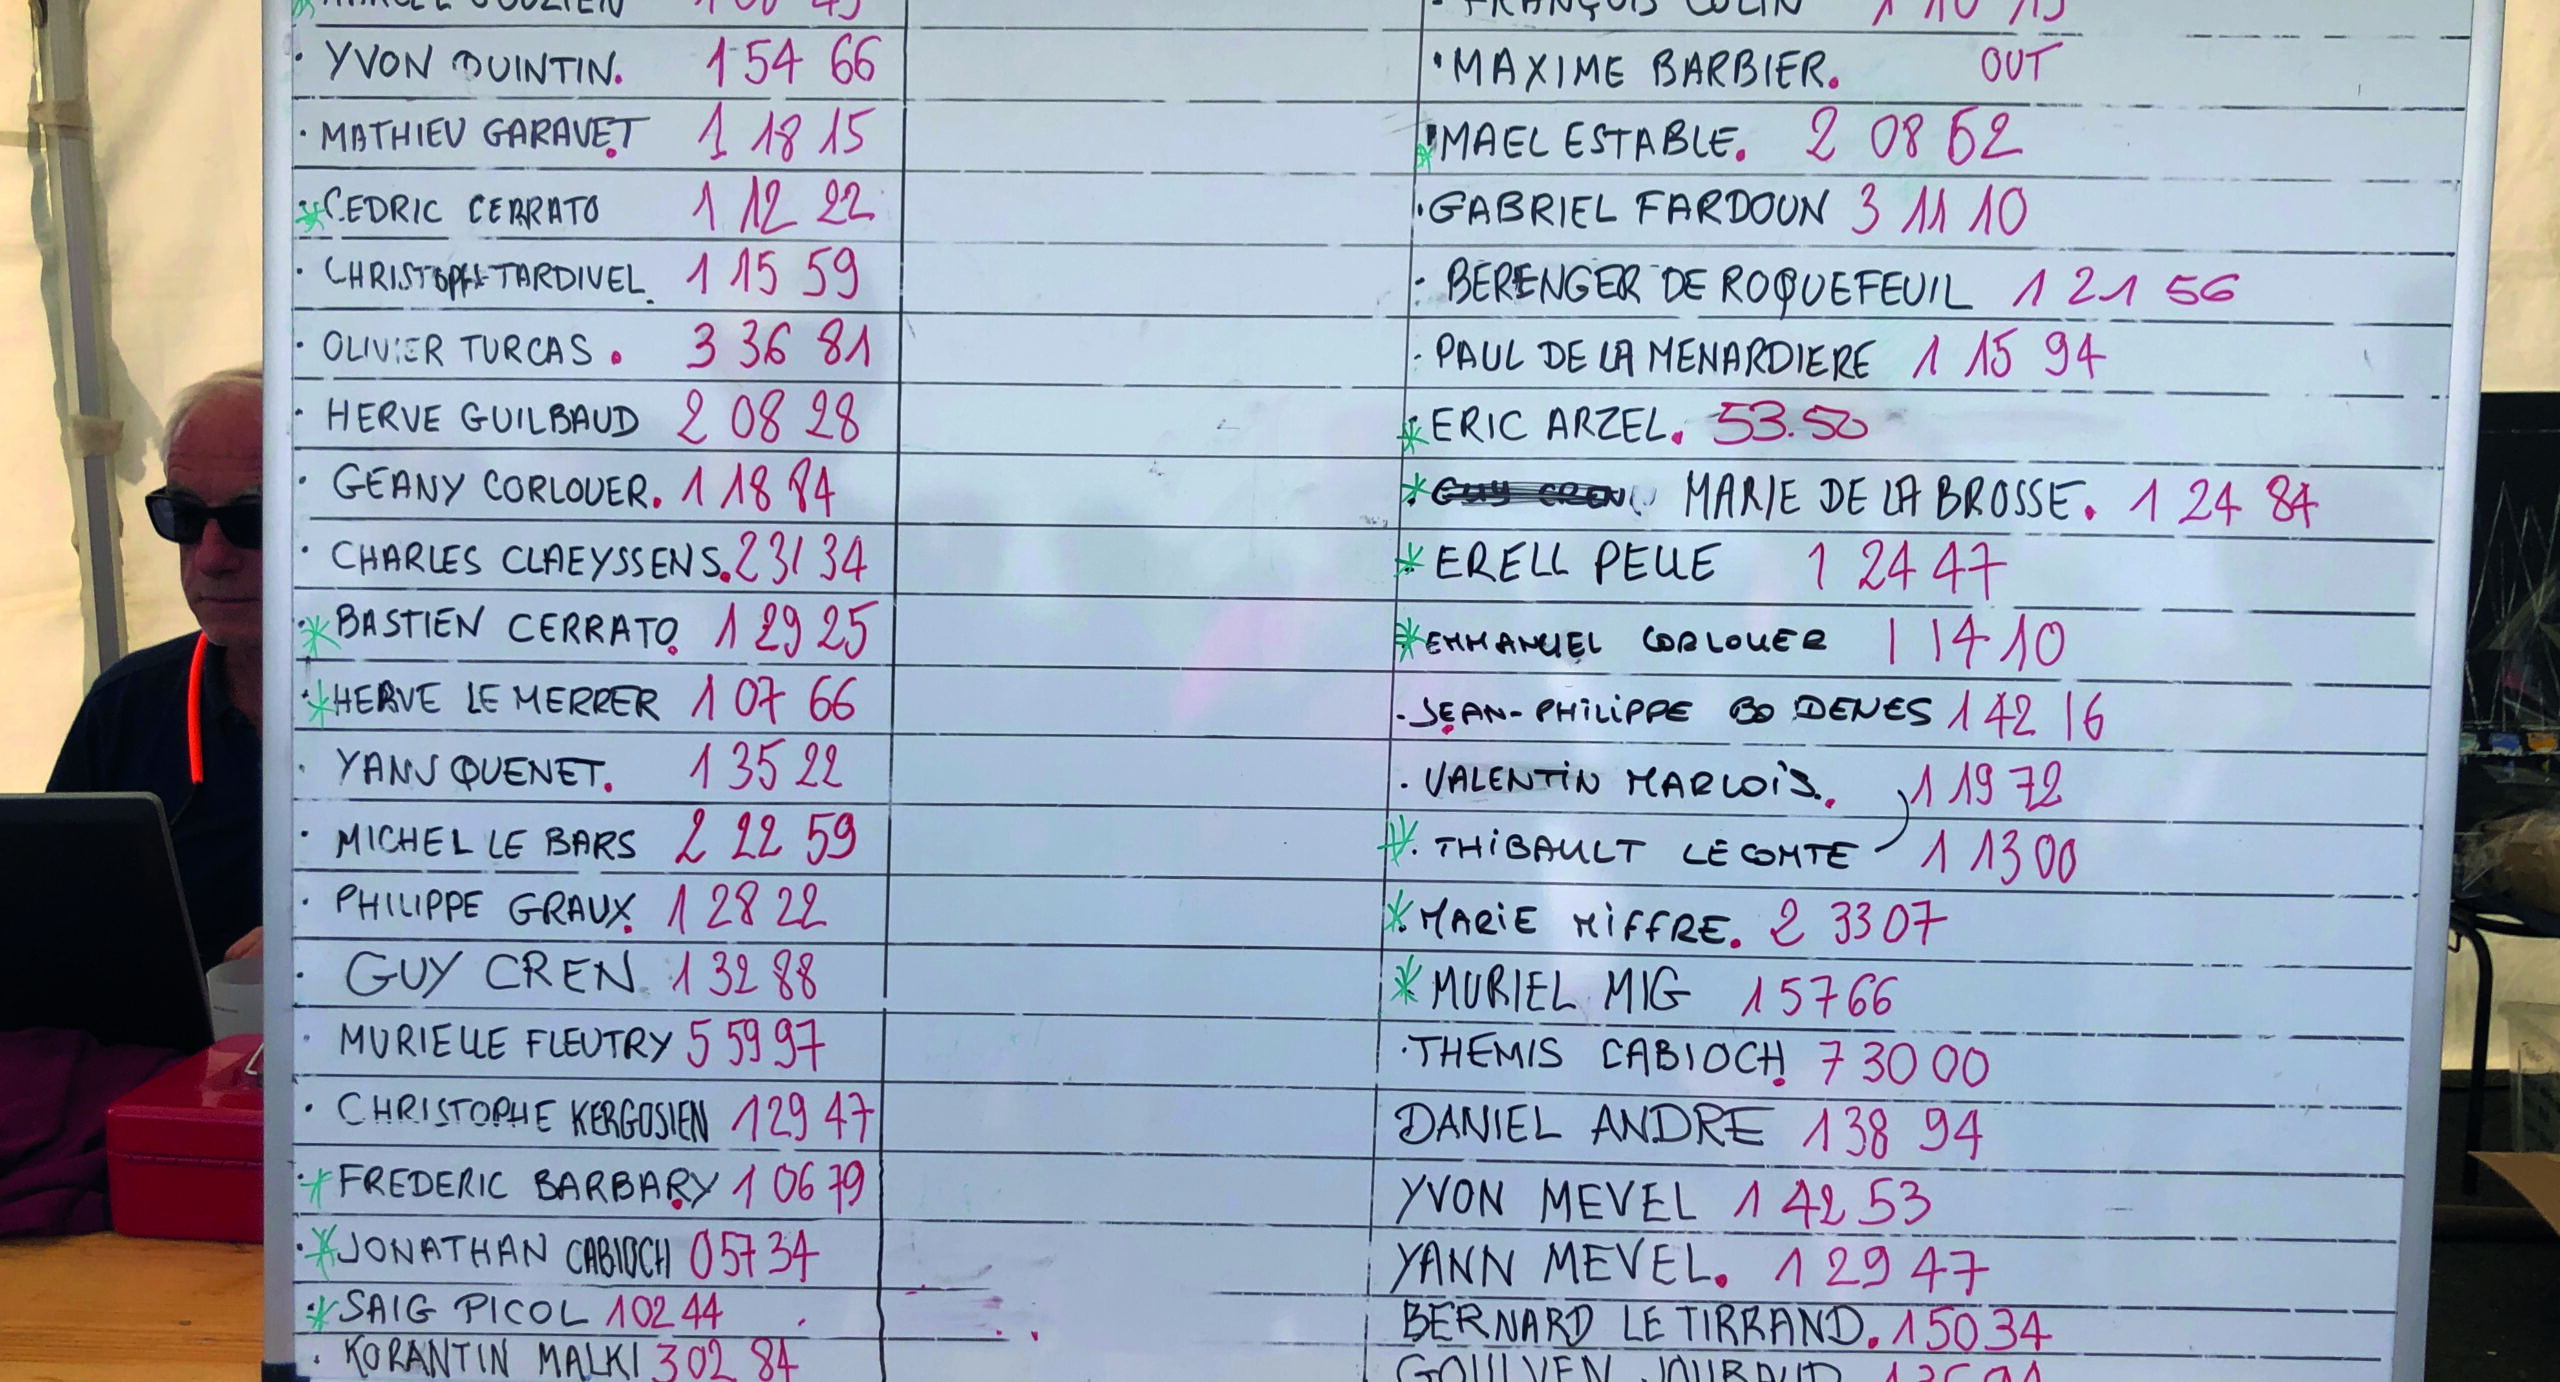 YVON QUINTIN. 1 54 66
· MATHIEU GARAVET. 1 18 15
* CEDRIC CERRATO 1 12 22
· CHRISTOPHE TARDIVEL. 1 15 59
· OLIVIER TURCAS. 3 36 81
· HERVE GUILBAUD 2 08 28
· GEANY CORLOUER. 1 18 84
· CHARLES CLAEYSSENS. 2 31 34
* BASTIEN CERRATO. 1 29 25
* HERVE LE MERRER 1 07 66
· YANN QUENET. 1 35 22
· MICHEL LE BARS 2 22 59
· PHILIPPE GRAUX. 1 28 22
· GUY CREN. 1 32 88
· MURIELLE FLEUTRY 5 59 97
· CHRISTOPHE KERGOSIEN 1 29 47
* FREDERIC BARBARY 1 06 79
* JONATHAN CABIOCH 0 57 34
* SAIG PICOL 1 02 44
· KORANTIN MALKI 3 02 84
FRANÇOIS COLIN 1 10 15
· MAXIME BARBIER. OUT
* MAEL ESTABLE. 2 08 62
· GABRIEL FARDOUN 3 11 10
· BERENGER DE ROQUEFEUIL 1 21 56
· PAUL DE LA MENARDIERE 1 15 94
* ERIC ARZEL. 53.50
* GUY CREN MARIE DE LA BROSSE. 1 24 84
* ERELL PELLE 1 24 47
* EMMANUEL CORLOUER 1 14 10
· JEAN-PHILIPPE BODENES 1 42 16
· VALENTIN MARLOIS. 1 19 72
* THIBAULT LECOMTE 1 13 00
* MARIE MIFFRE. 2 33 07
* MURIEL MIG 1 57 66
· THEMIS CABIOCH. 7 30 00
DANIEL ANDRE 1 38 94
YVON MEVEL 1 42 53
YANN MEVEL. 1 29 47
BERNARD LE TIRRAND. 1 50 34